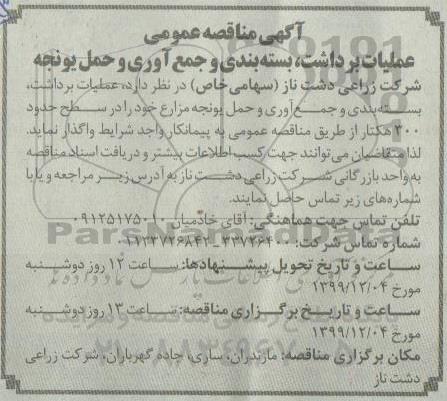 آگهی مناقصه عمومی
عملیات برداشت، بسته‌بندی و جمع آوری و حمل یونجه
شرکت زراعی دشت ناز (سهامی خاص) در نظر دارد، عملیات برداشت،
بسته‌بندی و جمع آوری و حمل یونجه مزارع خود را در سطح حدود
۳۰۰ هکتار از طریق مناقصه عمومی به پیمانکار واجد شرایط واگذار نماید.
لذا متقاضیان می‌توانند جهت کسب اطلاعات بیشتر و دریافت اسناد مناقصه
به واحد بازرگانی شرکت زراعی دشت ناز به آدرس زیر مراجعه و یا با
شماره‌های زیر تماس حاصل نمایند.
تلفن تماس جهت هماهنگی: آقای خادمیان ۰۹۱۲۵۱۷۵۰۱۰
شماره تماس شرکت: ۳۳۷۲۶۴۰۰ _ ۰۱۱۳۳۷۲۶۸۴۲
ساعت و تاریخ تحویل پیشنهادها: ساعت ۱۲ روز دوشنبه
مورخ ۱۳۹۹/۱۲/۰۴
ساعت و تاریخ برگزاری مناقصه: ساعت ۱۳ روز دوشنبه
مورخ ۱۳۹۹/۱۲/۰۴
مکان برگزاری مناقصه: مازندران، ساری، جاده گهرباران، شرکت زراعی
دشت ناز
ParsNamadData